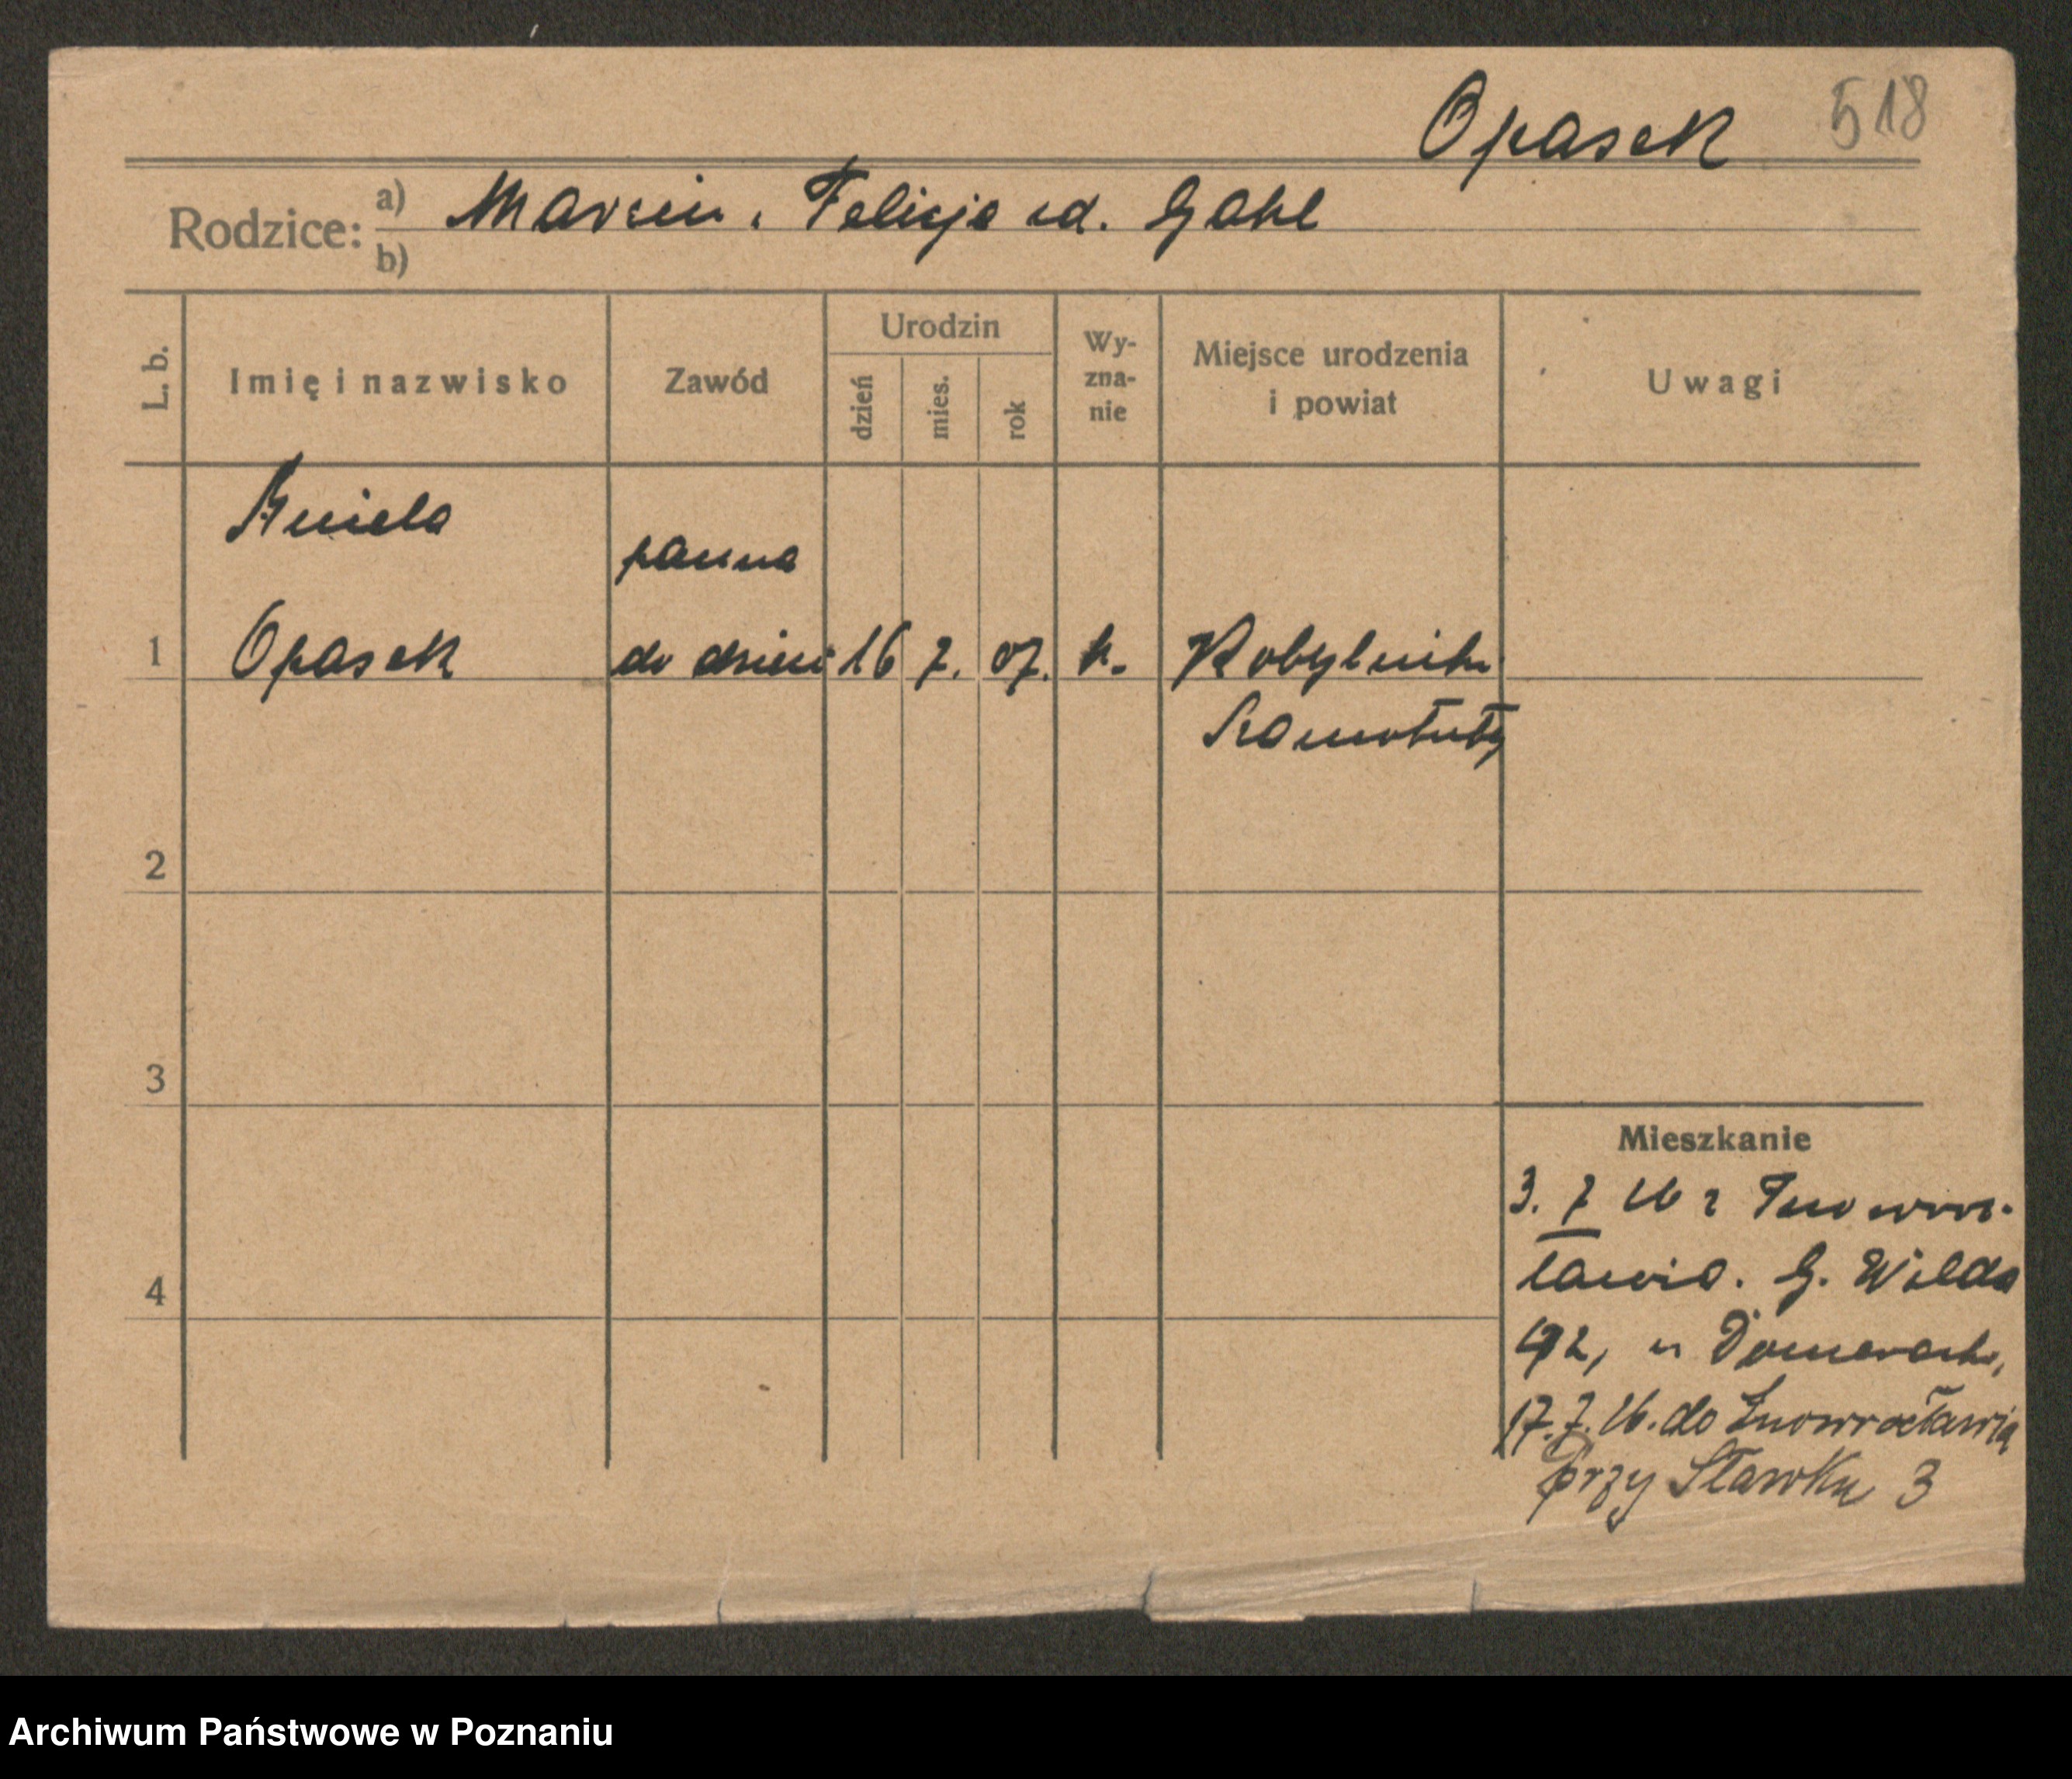 Opasek 518
Rodzice: a) Marcin i Felicja zd. Gahl
b)
L. b.
Imię i nazwisko
Zawód
Urodzin
dzień
mies.
rok
Wy-
zna-
nie
Miejsce urodzenia
i powiat
Uwagi
Aniela
panna
1 Opasek do dzieci 16 7. 07. k. Kobylniki
Szamotuły
2
3
4
Mieszkanie
3. 7 26 z Inowroc-
ławia. G. Wilda
92,
17.7.26. do Inowrocławia
przy Stawku 3
Archiwum Państwowe w Poznaniu